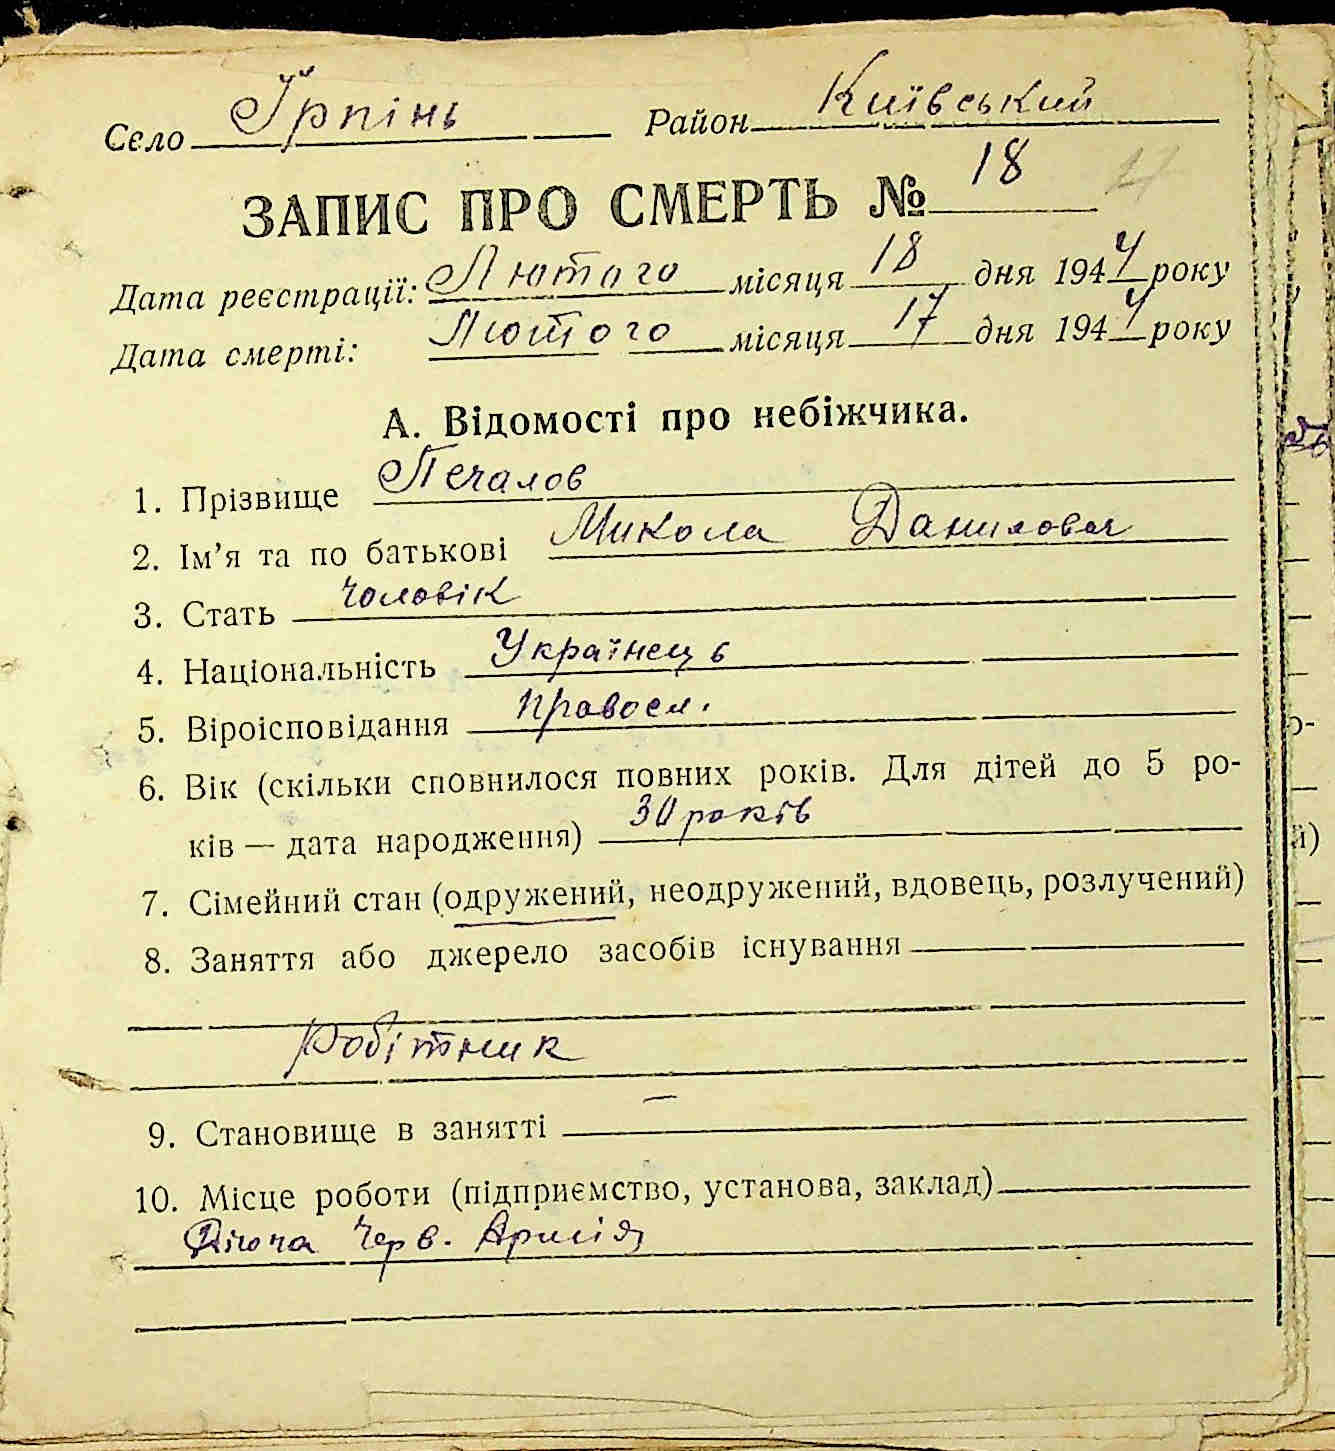 Село Ірпінь Район Київський
ЗАПИС ПРО СМЕРТЬ № 18
Дата реєстрації: Лютого місяця 18 дня 1944 року
Дата смерті: Лютого місяця 17 дня 1944 року
А. Відомості про небіжчика.
1. Прізвище Печалов
2. Ім'я та по батькові Микола Данилович
3. Стать Чоловік
4. Національність Українець
5. Віроісповідання Правосл.
6. Вік (скільки сповнилося повних років. Для дітей до 5 ро-
ків — дата народження) 30 років
7. Сімейний стан (одружений, неодружений, вдовець, розлучений)
8. Заняття або джерело засобів існування
Робітник
9. Становище в занятті —
10. Місце роботи (підприємство, установа, заклад)
Діюча Черв. Армія